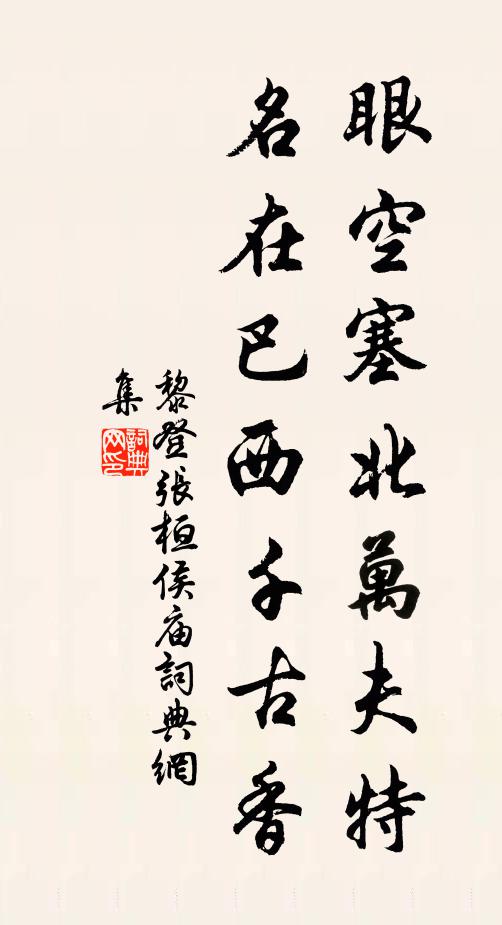 眼空塞北萬夫特
名在巴西千古香
黎登張桓侯庙詞典網
集
詞典
网印